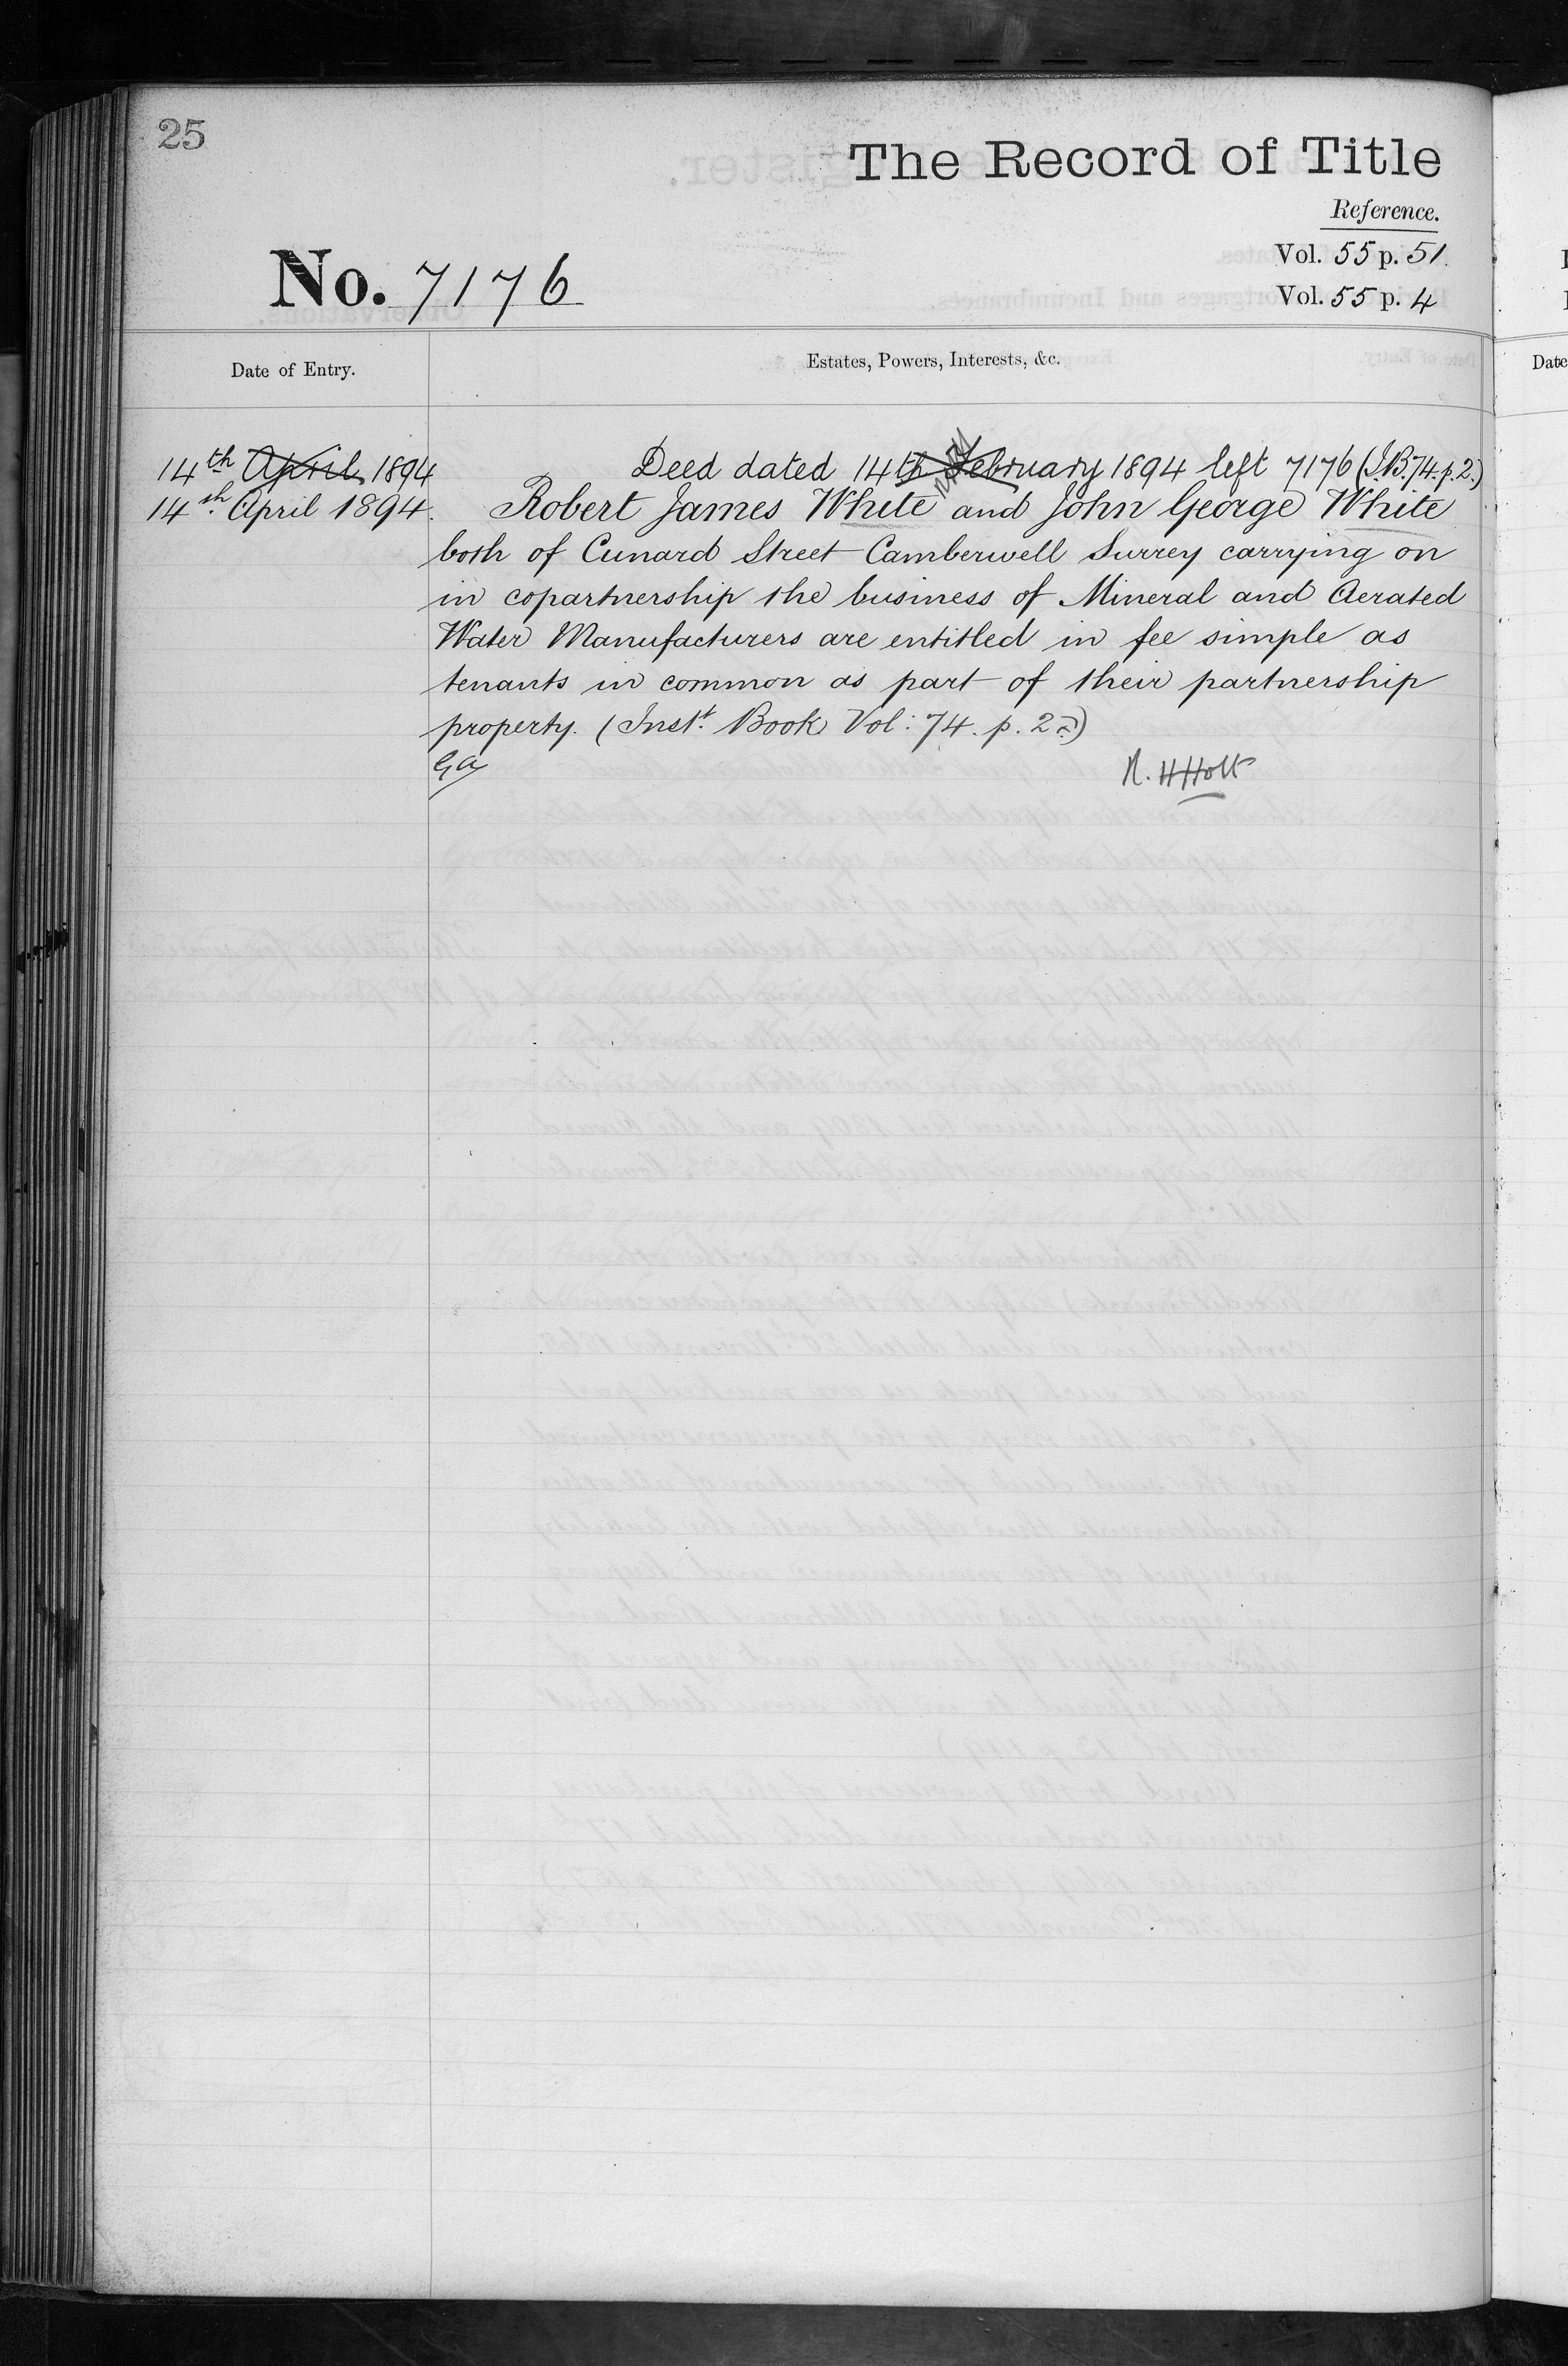 25
The Record of Title
Reference.
Vol. 55 p. 51.
No. 7176
Vol. 55 p. 4
Date of Entry.
Estates, Powers, Interests, &c.
14th April 1894
Deed dated 14th February 1894 left 7176 (I.B. 74. p. 2.)
14th April 1894.
Robert James White and John George White
both of Cunard Street Camberwell Surrey carrying on
in copartnership the business of Mineral and Aerated
Water Manufacturers are entitled in fee simple as
tenants in common as part of their partnership
property. (Inst. Book Vol: 74. p. 2.)
R. H Holt
Date